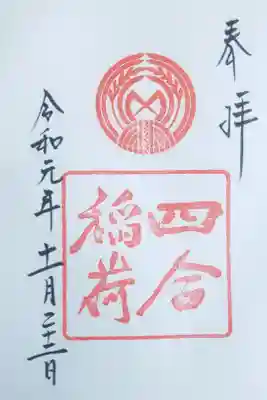 奉拝
四合
稲荷
令和元年十一月二十二日